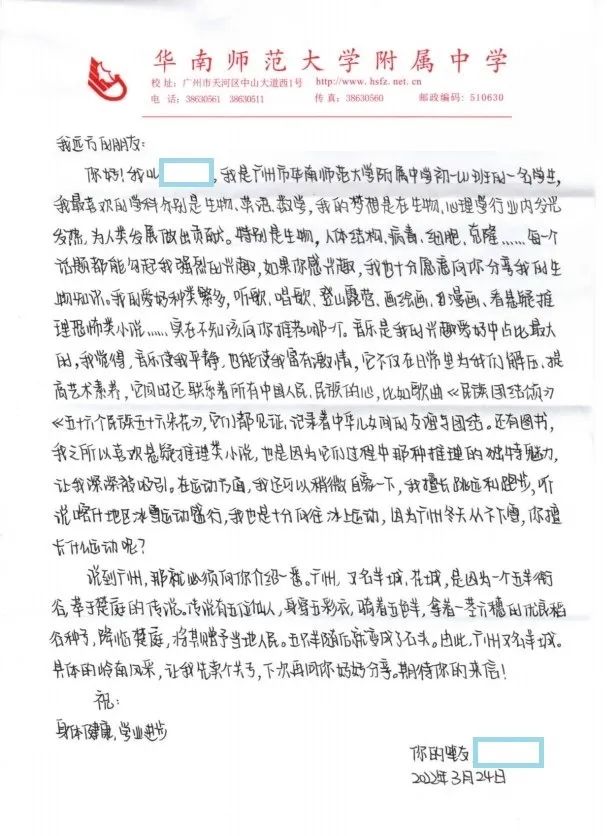 华南师范大学附属中学
校址：广州市天河区中山大道西1号 http://www.hsfz.net.cn
电话：38630561 38630511 传真：38630560 邮政编码：510630
我远方的朋友：
你好！我叫 ，我是广州市华南师范大学附属中学初一 班的一名学生，
我最喜欢的学科分别是生物、英语、数学，我的梦想是在生物、心理学行业内发光
发热，为人类发展做出贡献。特别是生物，人体结构、病毒、细胞、克隆……每一个
话题都能勾起我强烈的兴趣，如果你感兴趣，我也十分愿意向你分享我的生
物知识。我的爱好种类繁多，听歌、唱歌、登山露营、画绘画、看漫画、看悬疑推
理恐怖类小说……实在不知该向你推荐哪个。音乐是我的兴趣爱好中占比最大
的，我觉得，音乐使我平静，也能使我富有激情，它不仅在日常里为我们解压、提
高艺术素养，它同时还联系着所有中国人民、民族的心，比如歌曲《民族团结颂》
《五十六个民族五十六朵花》，它们都见证、记录着中华儿女间的友谊与团结。还有图书，
我之所以喜欢悬疑推理类小说，也是因为它们过程中那种推理的独特魅力，
让我深深被吸引。在运动方面，我还可以稍微自夸一下，我擅长跳远和跑步，听
说喀什地区冰雪运动盛行，我也是十分向往冰上运动，因为广州冬天从不下雪，你擅
长什么运动呢？
说到广州，那就必须向你介绍一番。广州，又名羊城、花城，是因为一个五羊衔
谷，萃于楚庭的传说。传说有五位仙人，身穿五彩衣，骑着五色羊，拿着一茎六穗的优良稻
谷种子，降临楚庭，将其赠予当地人民。五只羊随后就变成了石头。由此，广州又名羊城。
具体的岭南风采，让我先卖个关子，下次再向你好好分享。期待你的来信！
祝：
身体健康，学业进步
你的笔友
2022年3月24日